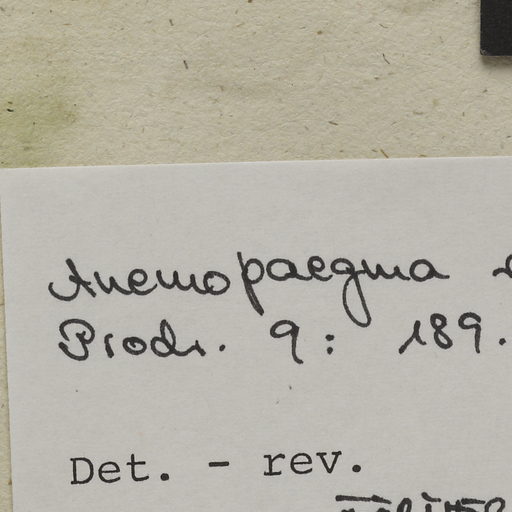 Anemopaegma
Prodr. 9: 189.
Det. - rev.